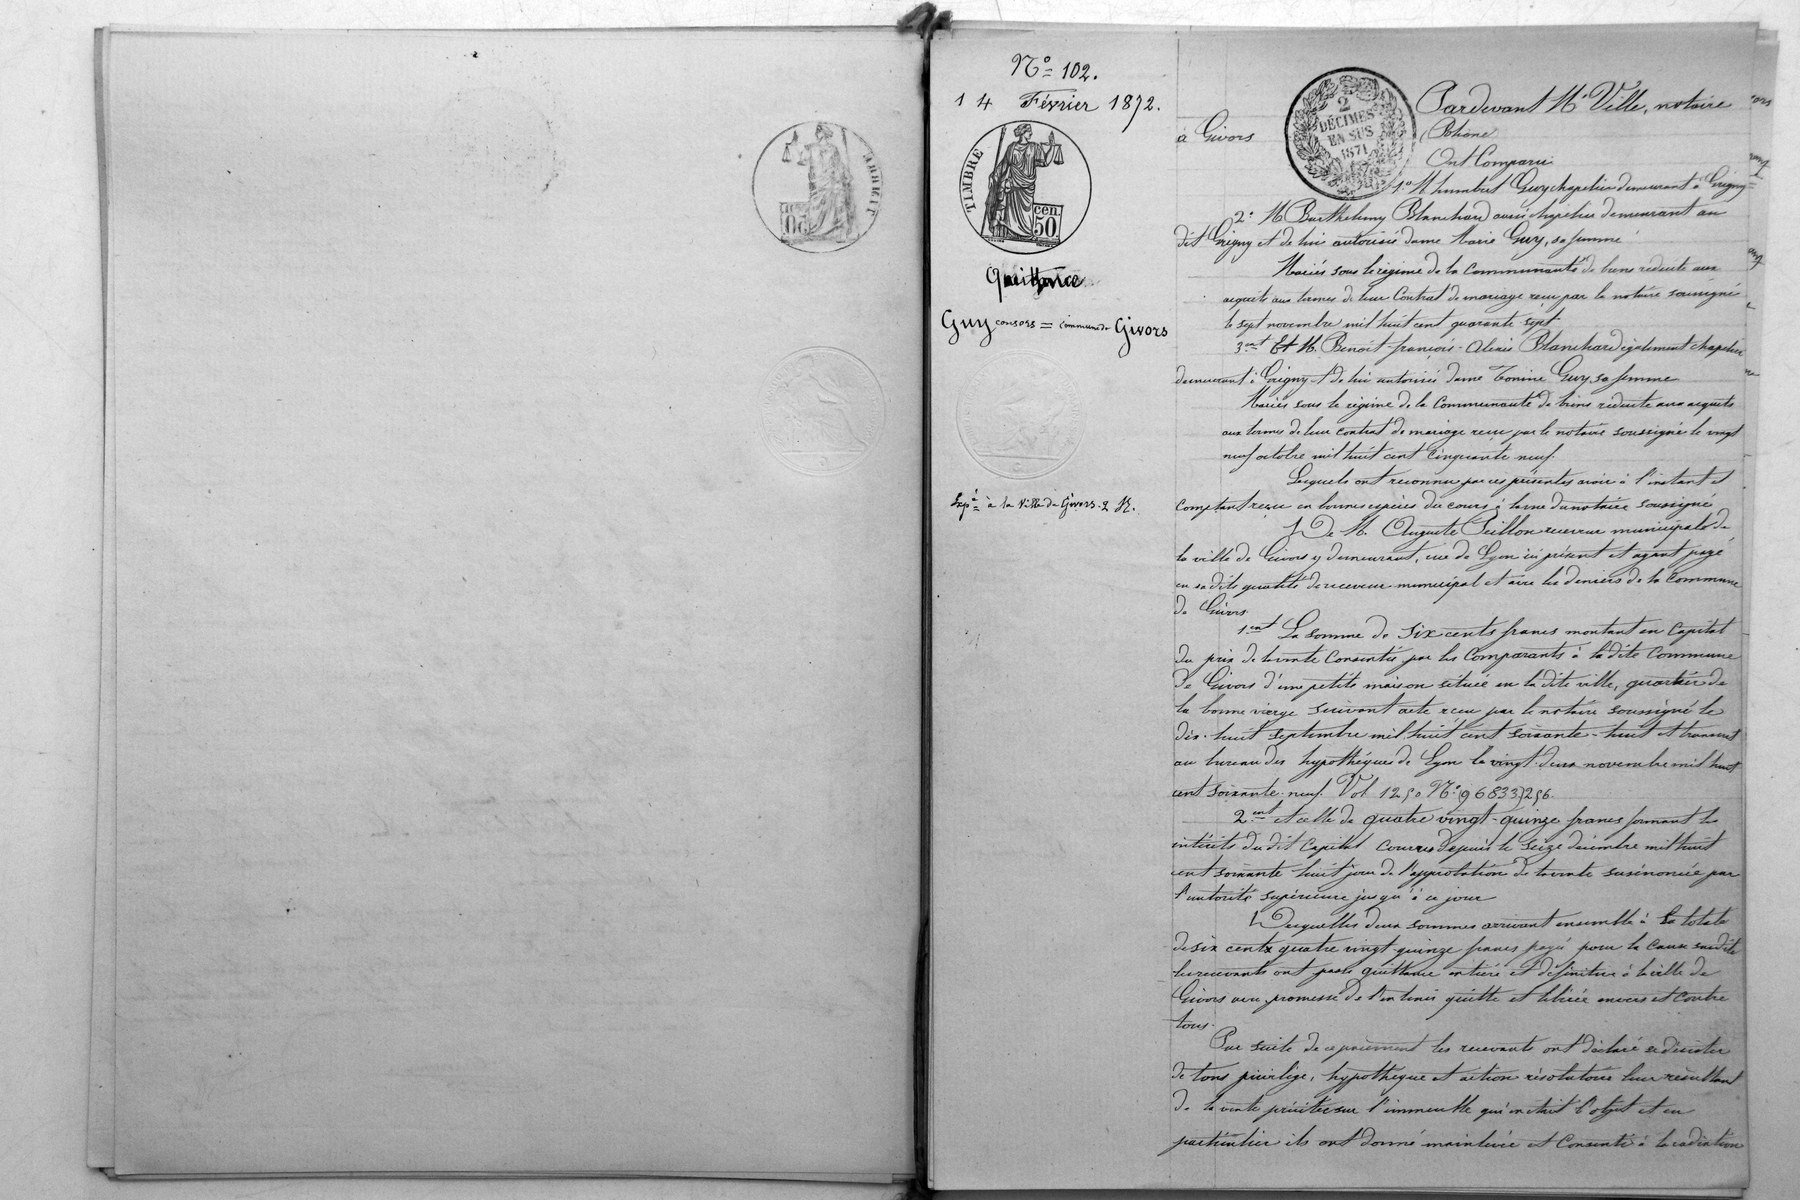 N° 102.
14 Février 1872.
TIMBRE
cen. 50
Quittance
Guy consors = Commune de Givors
Expé à la Ville de Givors. 2 R.
2
DÉCIMES
EN SUS
1871
Pardevant Me Ville, notaire
à Givors (Rhône)
Ont Comparu
1° M humbert Guy chapelier demeurant à Grigny
2° M Barthelemy Blanchard aussi chapelier demeurant au
dit Grigny et de lui autorisée dame Marie Guy, sa femme
Mariés sous le régime de la Communauté de biens réduite aux
acquets aux termes de leur Contrat de mariage reçu par le notaire soussigné
le sept novembre mil huit cent quarante sept
3ent Et M. Benoit-françois-Alexis Blanchard également chapelier
demeurant à Grigny et de lui autorisée dame Tonine Guy, sa femme
Mariés sous le régime de la Communauté de biens réduite aux acquets
aux termes de leur contrat de mariage reçu par le notaire soussigné le vingt
neuf octobre mil huit cent cinquante neuf.
Lesquels ont reconnu par ces présentes avoir à l'instant et
comptant reçu en bonnes espèces du cours à la vue du notaire soussigné
De M. Auguste Peillon receveur municipal de
la ville de Givors y demeurant, rue de Lyon ici présent et ayant payé
en sa dite qualité de receveur municipal et avec les deniers de la Commune
de Givors.
1ent La somme de six cents francs montant en Capital
du prix de la vente Consentie par les Comparants à la dite Commune
de Givors d'une petite maison située en la dite ville, quartier de
la bonne vierge suivant acte reçu par le notaire soussigné le
dix-huit septembre mil huit cent soixante-huit et transcrit
au bureau des hypothéques de Lyon le vingt-deux novembre mil huit
cent soixante-neuf. Vol 1250 N° (96833) 256.
2ent et celle de quatre vingt-quinze francs formant les
intérêts du dit Capital courrus depuis le seize décembre mil huit
cent soixante huit jour de l'approbation de la vente susénoncée par
l'autorité supérieure jusqu'à ce jour
Desquelles deux sommes arrivant ensemble à la totale
de six cents quatre vingt-quinze francs payé pour la cause susdite
les recevants ont passé quittance entière et définitive à la ville de
Givors avec promesse de l'en tenir quitte et libérée envers et contre
tous.
Par suite de ce paiement les recevants ont déclaré se désister
de tous privilège, hypothèque et action résolutoire leur résultant
de la vente précitée sur l'immeuble qui en était l'objet et en
particulier ils ont donné mainlevée et Consenti à la radiation